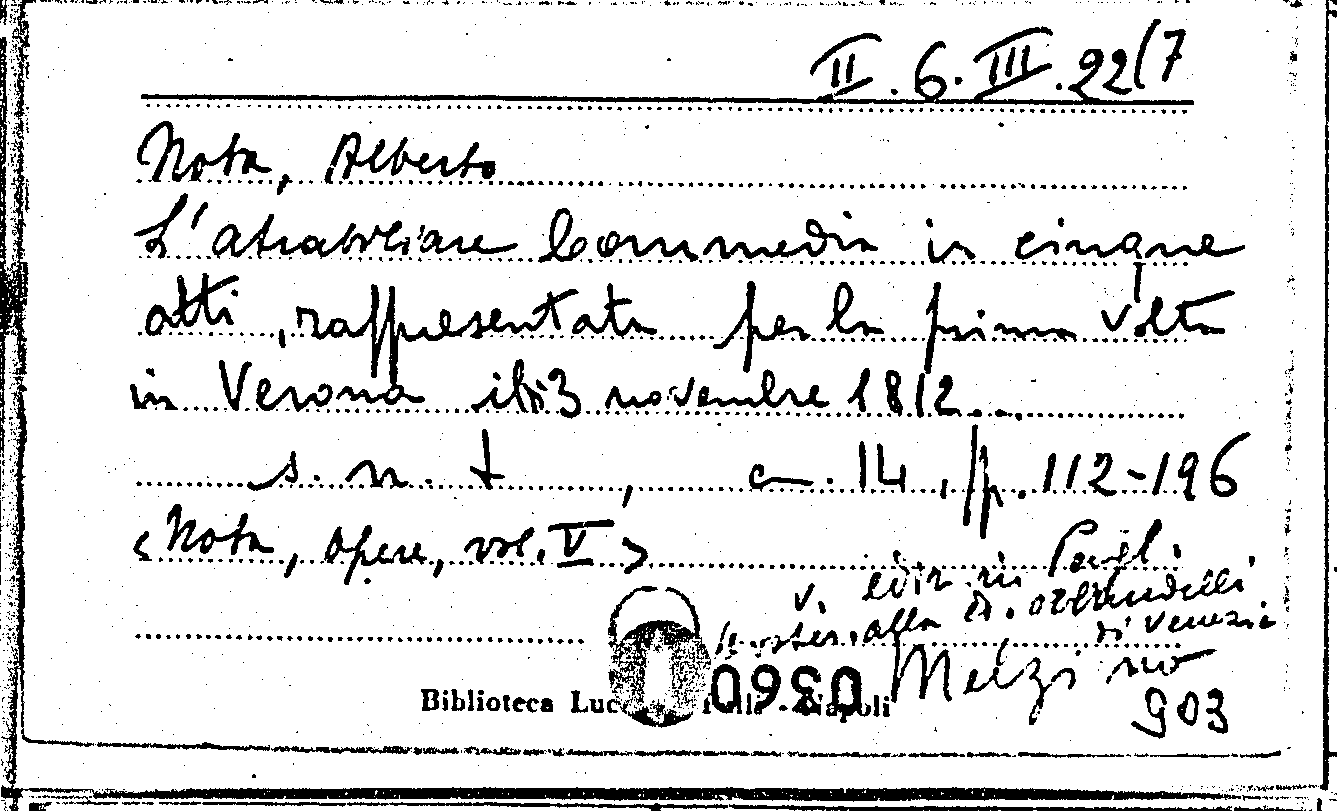 II.6.III.22(7
Nota, Alberto
L'atrabiliare Commedia in cinque
atti, rappresentata per la prima volta
in Verona il dì 3 novembre 1812...
s. n. t, c. 14, pp. 112-196
<Nota, opere, vol. V>
v. ediz. in
alla di
di Venezia
Melzi no
903
0960
Biblioteca Luc - Napoli